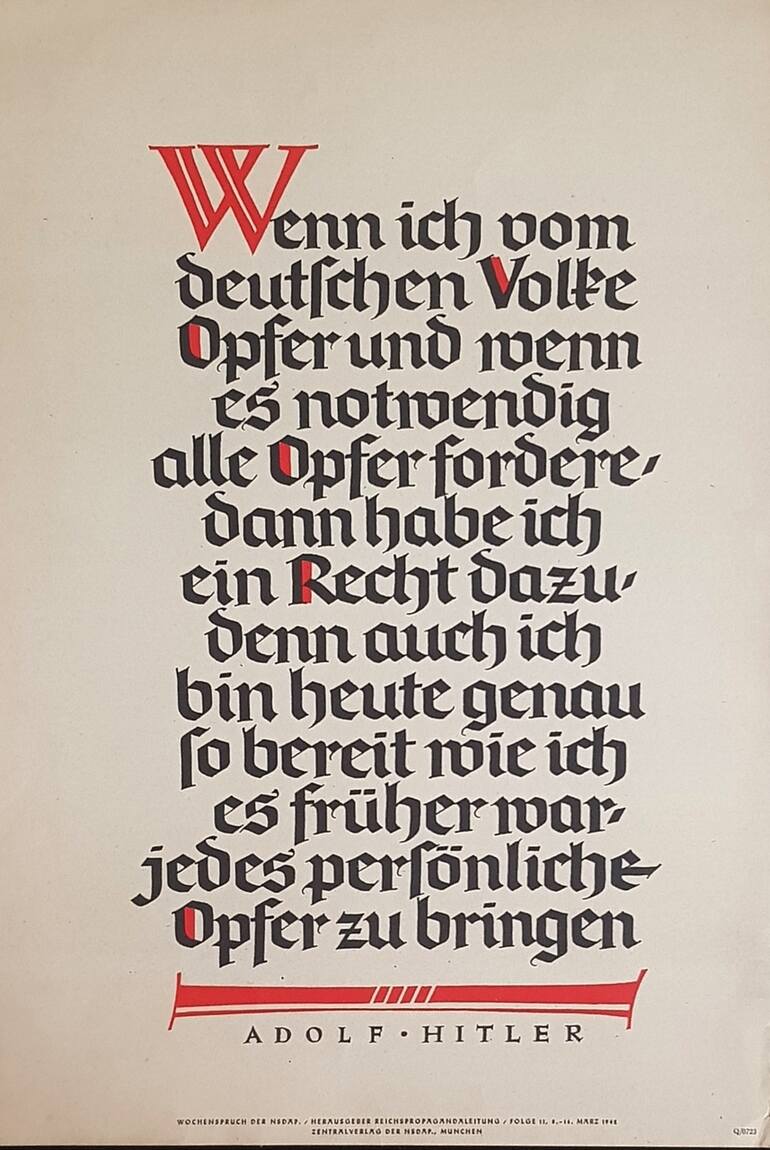 Wenn ich vom
deutschen Volke
Opfer und wenn
es notwendig
alle Opfer fordere,
dann habe ich
ein Recht dazu,
denn auch ich
bin heute genau
so bereit wie ich
es früher war,
jedes persönliche
Opfer zu bringen
ADOLF • HITLER
WOCHENSPRUCH DER NSDAP. / HERAUSGEBER REICHSPROPAGANDALEITUNG / FOLGE 11, 8.–14. MÄRZ
ZENTRALVERLAG DER NSDAP., MÜNCHEN
Q/0723